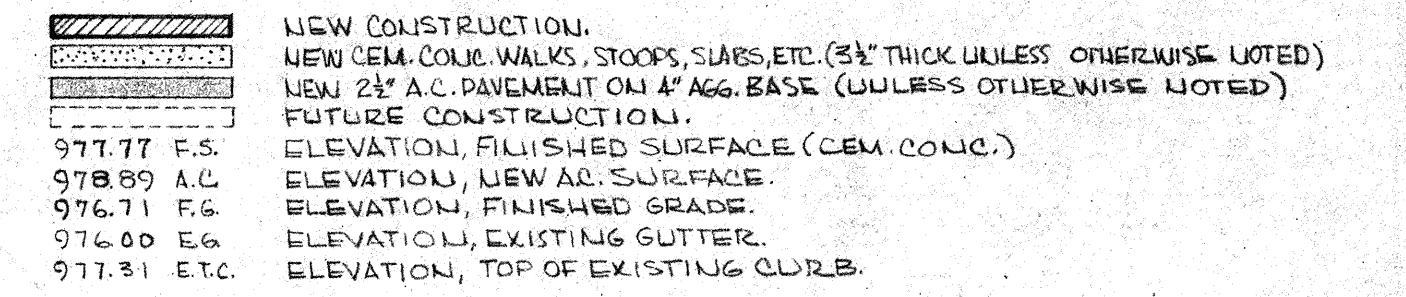 NEW CONSTRUCTION.
NEW CEM. CONC. WALKS, STOOPS, SLABS, ETC. (3½" THICK UNLESS OTHERWISE NOTED)
NEW 2½" A.C. PAVEMENT ON 4" AGG. BASE (UNLESS OTHERWISE NOTED)
FUTURE CONSTRUCTION.
977.77 F.S. ELEVATION, FINISHED SURFACE (CEM. CONC.)
978.89 A.C. ELEVATION, NEW A.C. SURFACE.
976.71 F.G. ELEVATION, FINISHED GRADE.
976.00 E.G. ELEVATION, EXISTING GUTTER.
977.31 E.T.C. ELEVATION, TOP OF EXISTING CURB.